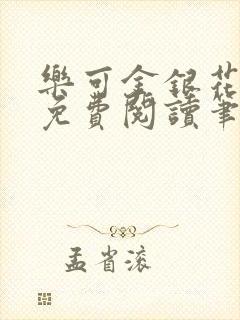 樂可金銀花
免費閱讀筆
孟省滚